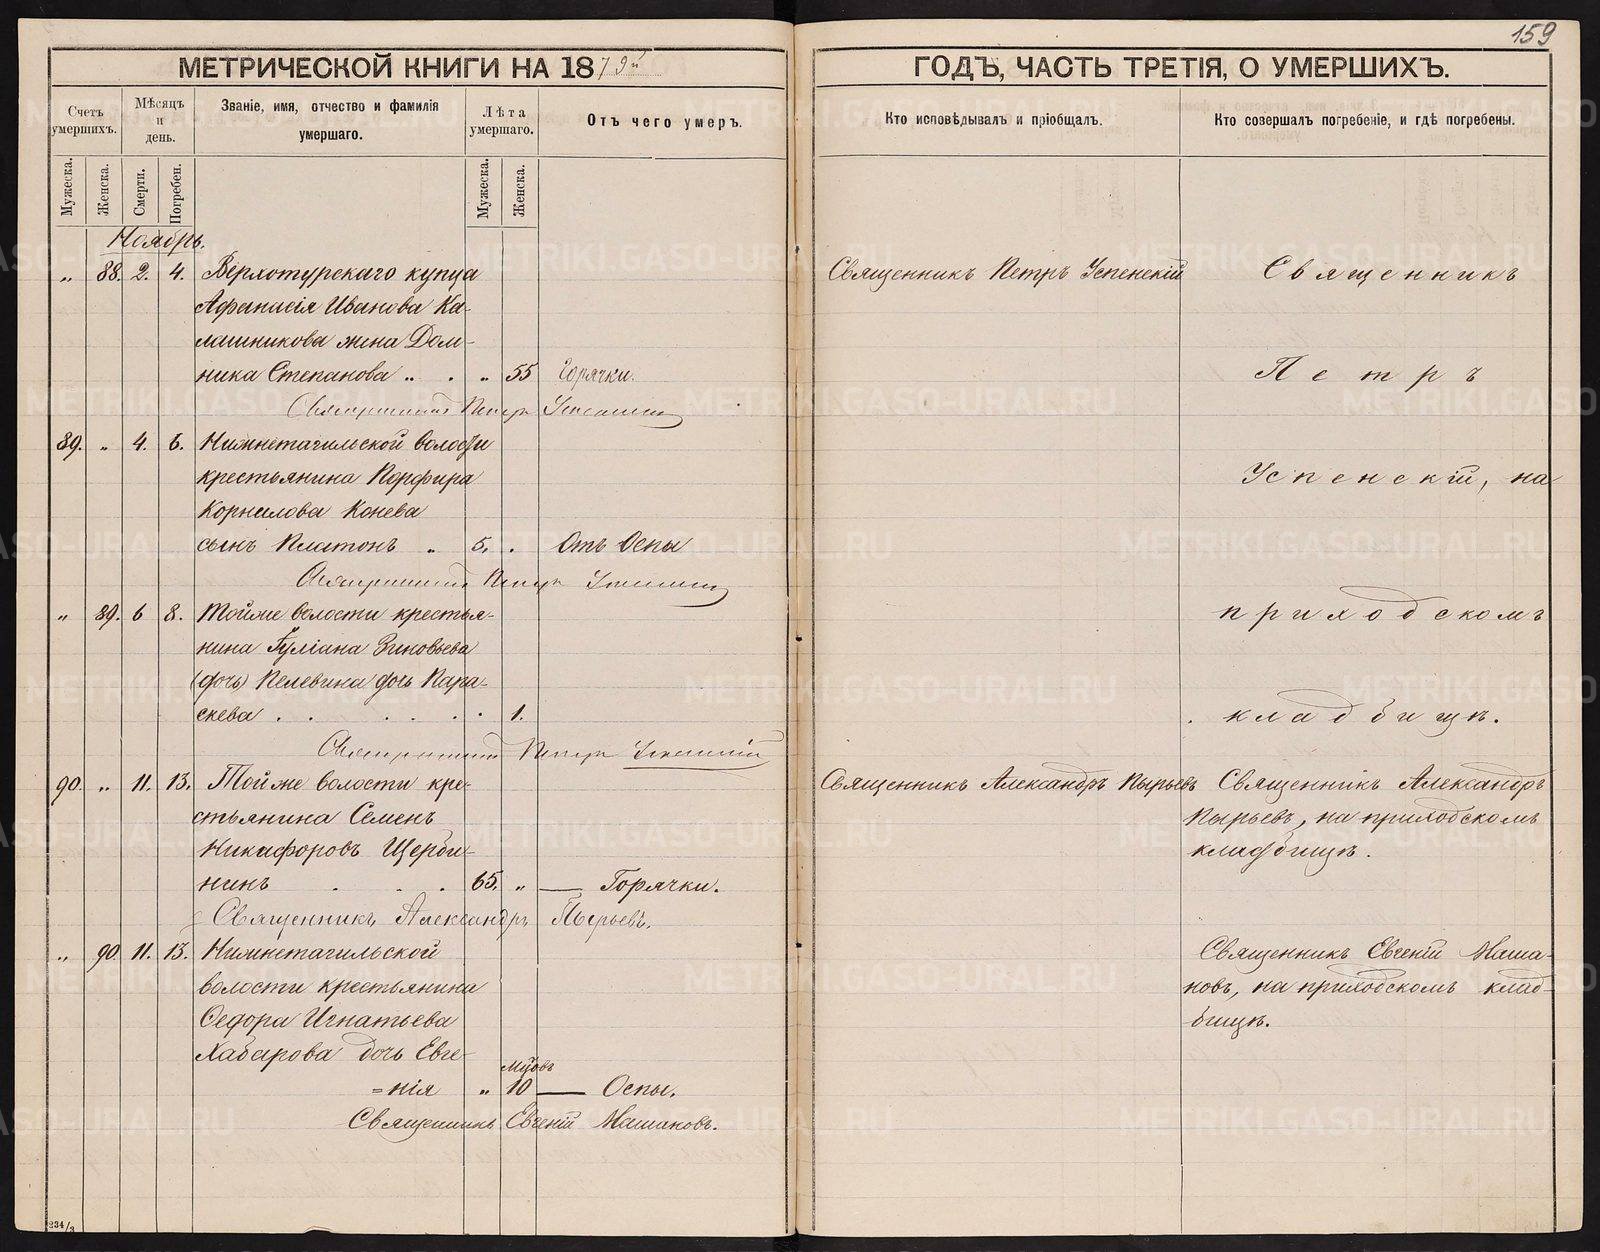 159
МЕТРИЧЕСКОЙ КНИГИ НА 1879й
ГОДЪ, ЧАСТЬ ТРЕТІЯ, О УМЕРШИХЪ.
Счетъ умершихъ.
Мѣсяцъ и день.
Званіе, имя, отчество и фамилія умершаго.
Лѣта умершаго.
Отъ чего умеръ.
Кто исповѣдывалъ и пріобщалъ.
Кто совершалъ погребеніе, и гдѣ погребены.
Мужеска.
Женска.
Смерти.
Погребен.
Мужеска.
Женска.
Ноябрь.
„ 88. 2. 4. Верхотурскаго купца
Афанасія Иванова Ка-
лашникова жена Дом-
ника Степанова „ . „ 55 Горячки.
Священникъ Петръ Успенскій
89. „ 4. 6. Нижнетагильской волости
крестьянина Порфира
Корнилова Конева
сынъ Платонъ „ 5. . Отъ Оспы
Священникъ Петръ Успенскій
„ 89. 6 8. Тойже волости крестья-
нина Іуліана Зиновьева
(дочь) Пелевина дочь Пара-
скева . . . . . . 1.
Священникъ Петръ Успенскій
90. „ 11. 13. Тойже волости кре-
стьянина Семенъ
Никифоровъ Щерби-
нинъ . . . 65. „ — Горячки.
Священникъ Александръ Пырьевъ.
„ 90 11. 13. Нижнетагильской
волости крестьянина
Ѳедора Игнатьева
Хабарова дочь Евге-
=нія „ 10 мцовъ — Оспы.
Священникъ Евгеній Машановъ.
Священникъ Петръ Успенскій
Священникъ
Петръ
Успенскій, на
приходскомъ
. кладбищѣ.
Священникъ Александръ Пырьевъ
Священникъ Александръ
Пырьевъ, на приходскомъ
кладбищѣ.
Священникъ Евгеній Маша-
новъ, на приходскомъ клад-
бищѣ.
234/3
METRIKI.GASO-URAL.RU